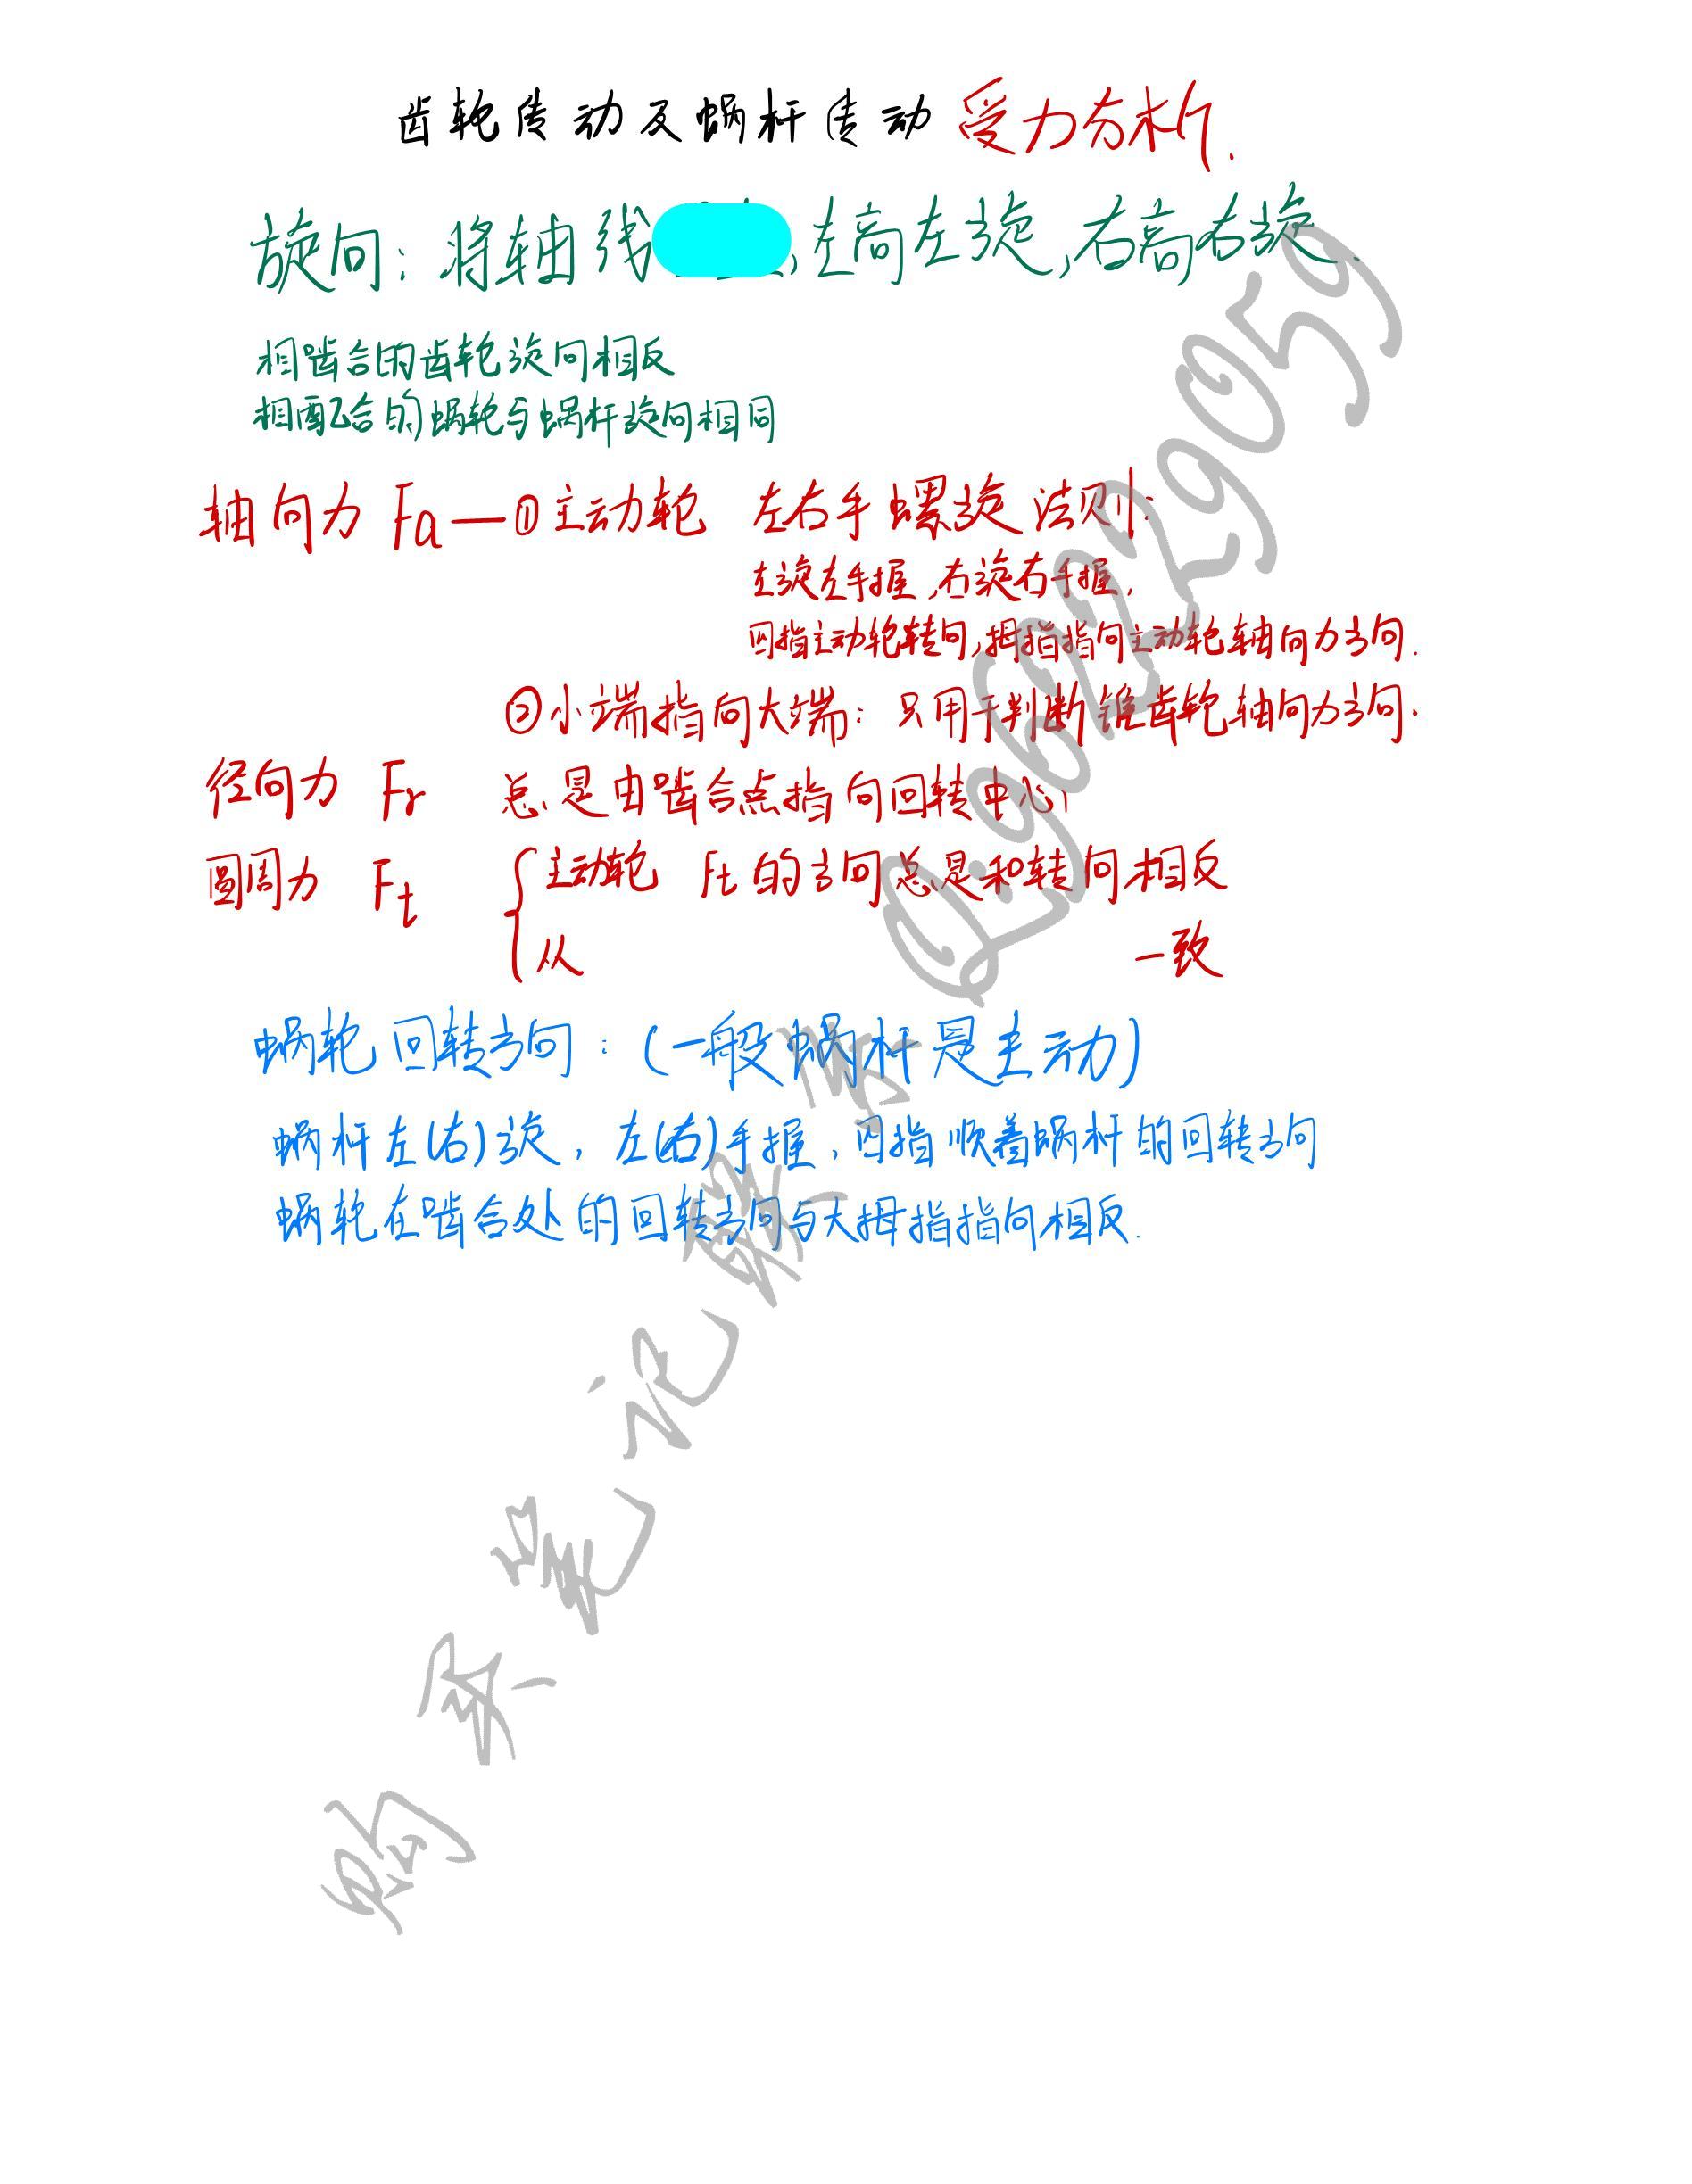 齿轮传动及蜗杆传动受力分析.
旋向：将轴线 ,左高左旋,右高右旋.
相啮合的齿轮旋向相反
相配合的蜗轮与蜗杆旋向相同
轴向力 Fa—①主动轮 左右手螺旋法则：
左旋左手握,右旋右手握,
四指主动轮转向,拇指指向主动轮轴向力方向.
②小端指向大端：只用于判断锥齿轮轴向力方向.
径向力 Fr 总是由啮合点指向回转中心
圆周力 Ft 主动轮 Ft的方向总是和转向相反
从 一致
蜗轮回转方向：(一般蜗杆是主动)
蜗杆左(右)旋,左(右)手握,四指顺着蜗杆的回转方向
蜗轮在啮合处的回转方向与大拇指指向相反.
购买笔记联系Q:969229059